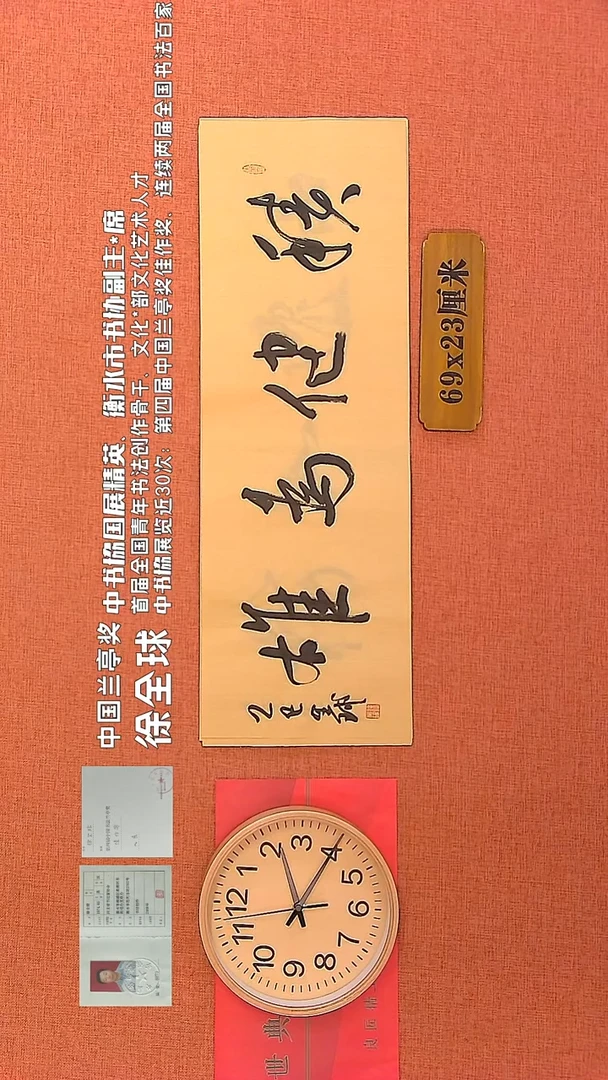 中国兰亭奖 中书協国展精英、衡水市书协副主*席
首届全国青年书法创作骨干、文化*部文化艺术人才
徐全球 中书協展览近30次；第四届中国兰亭奖佳作奖、连续两届全国书法百家
積健為雄
乙巳 全球
69x23厘米
12
1
2
3
4
5
6
7
8
9
10
11
世典